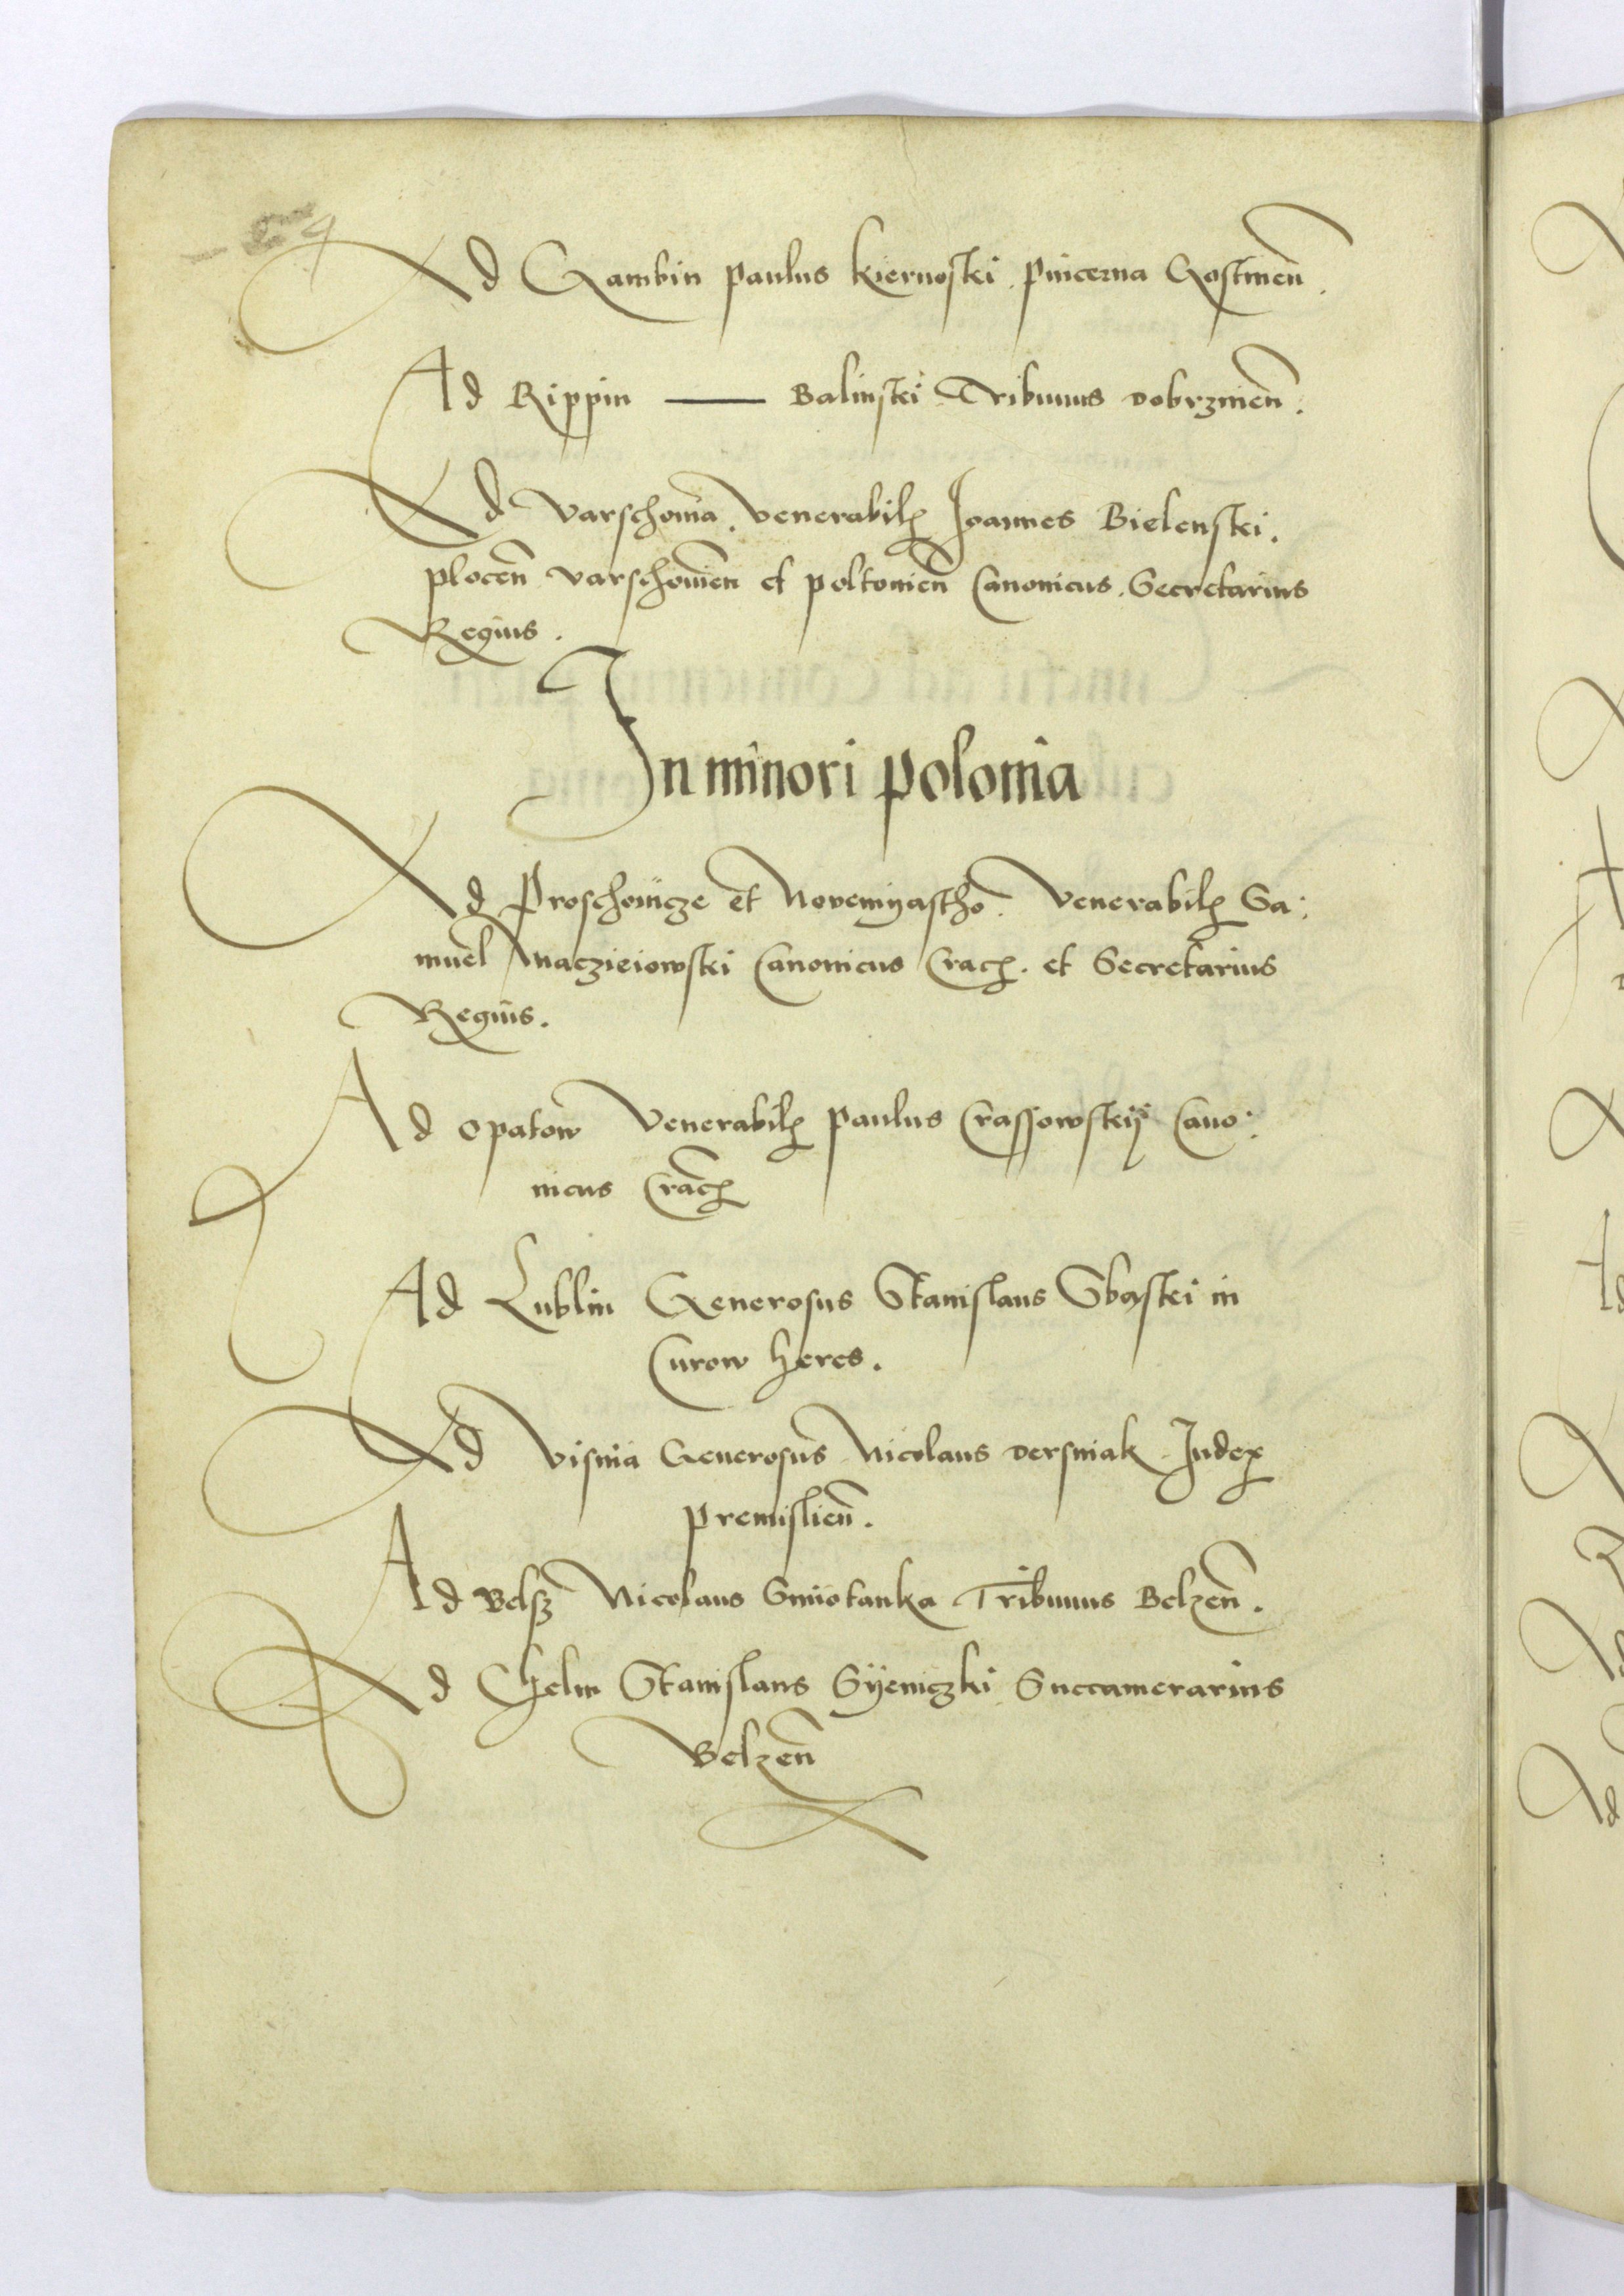 Ad Gambin paulus kiernoski. pincerna Gostinen̄.
Ad Rippin —— Balinski Tribunus dobrzinen̄.
Ad Varschovia. Venerabilis Joannes Bielenski.
plocen̄ varschovien̄ et poltovien̄ Canonicus. Secretarius
Regius.
In minori polonia
Ad Proschovicze et Novemyastho. Venerabilis Sa:
muel Maczieiowski Canonicus Crac. et Secretarius
Regius.
Ad opatow Venerabilis paulus Crassowskij Cano:
nicus Crac
Ad Lublin Generosus Stanislaus Sbaski in
Curow heres.
Ad Visnia Generosus Nicolaus dersniak Judex
premislien̄.
Ad Belsz Nicolaus Smiotanka Tribunus Belzen̄.
Ad Chelm Stanislaus Syeniczki Succamerarius
Belzen̄